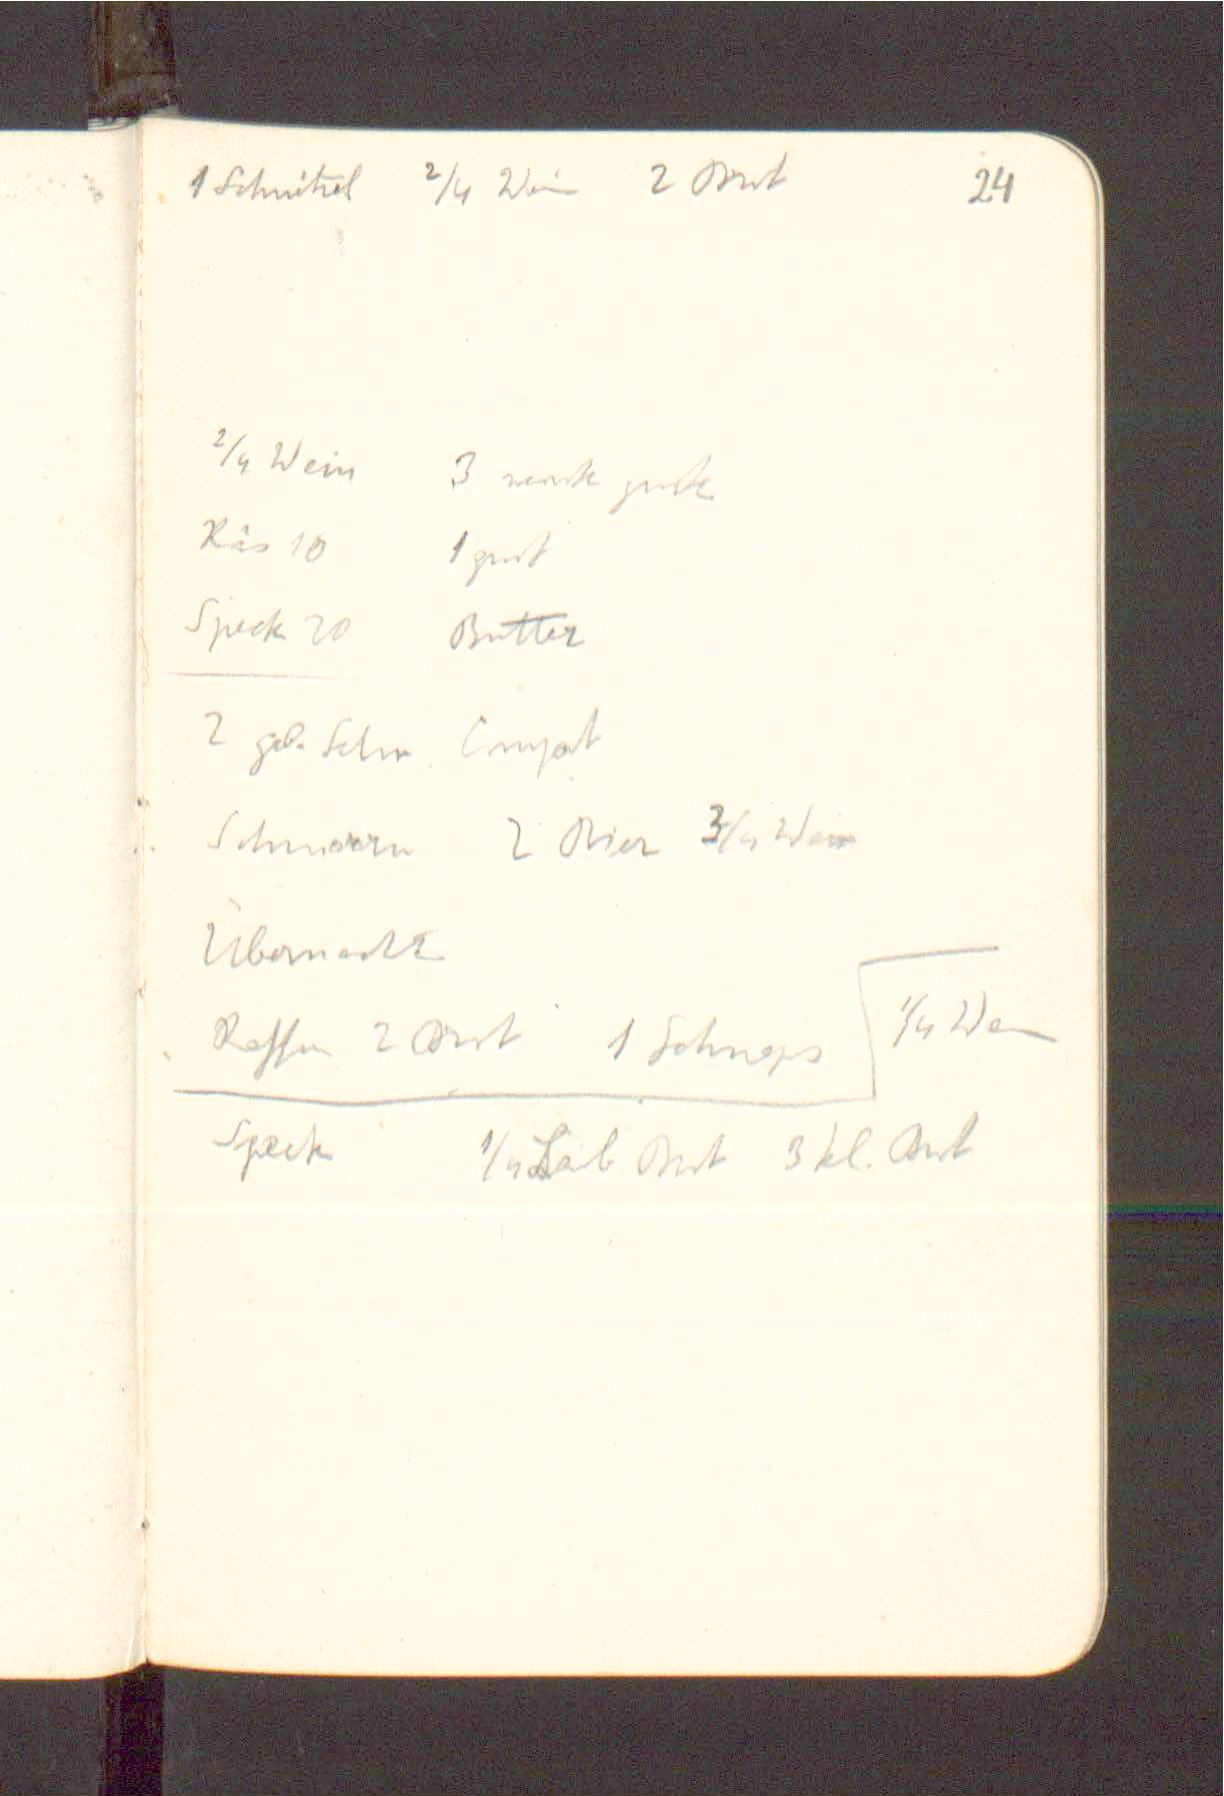 1 Schnitzel 2/4 Wein 2 Brot 24
2/4 Wein 3
Käs 10 1
Speck 20 Butter
2 geb. Schn. Compot
Schmarrn 2 Bier 3/4 Wein
Übernacht
Kaffee 2 Brot 1 Schnaps 1/4 Wein
Speck 1/4 Laib Brot 3 kl. Brot